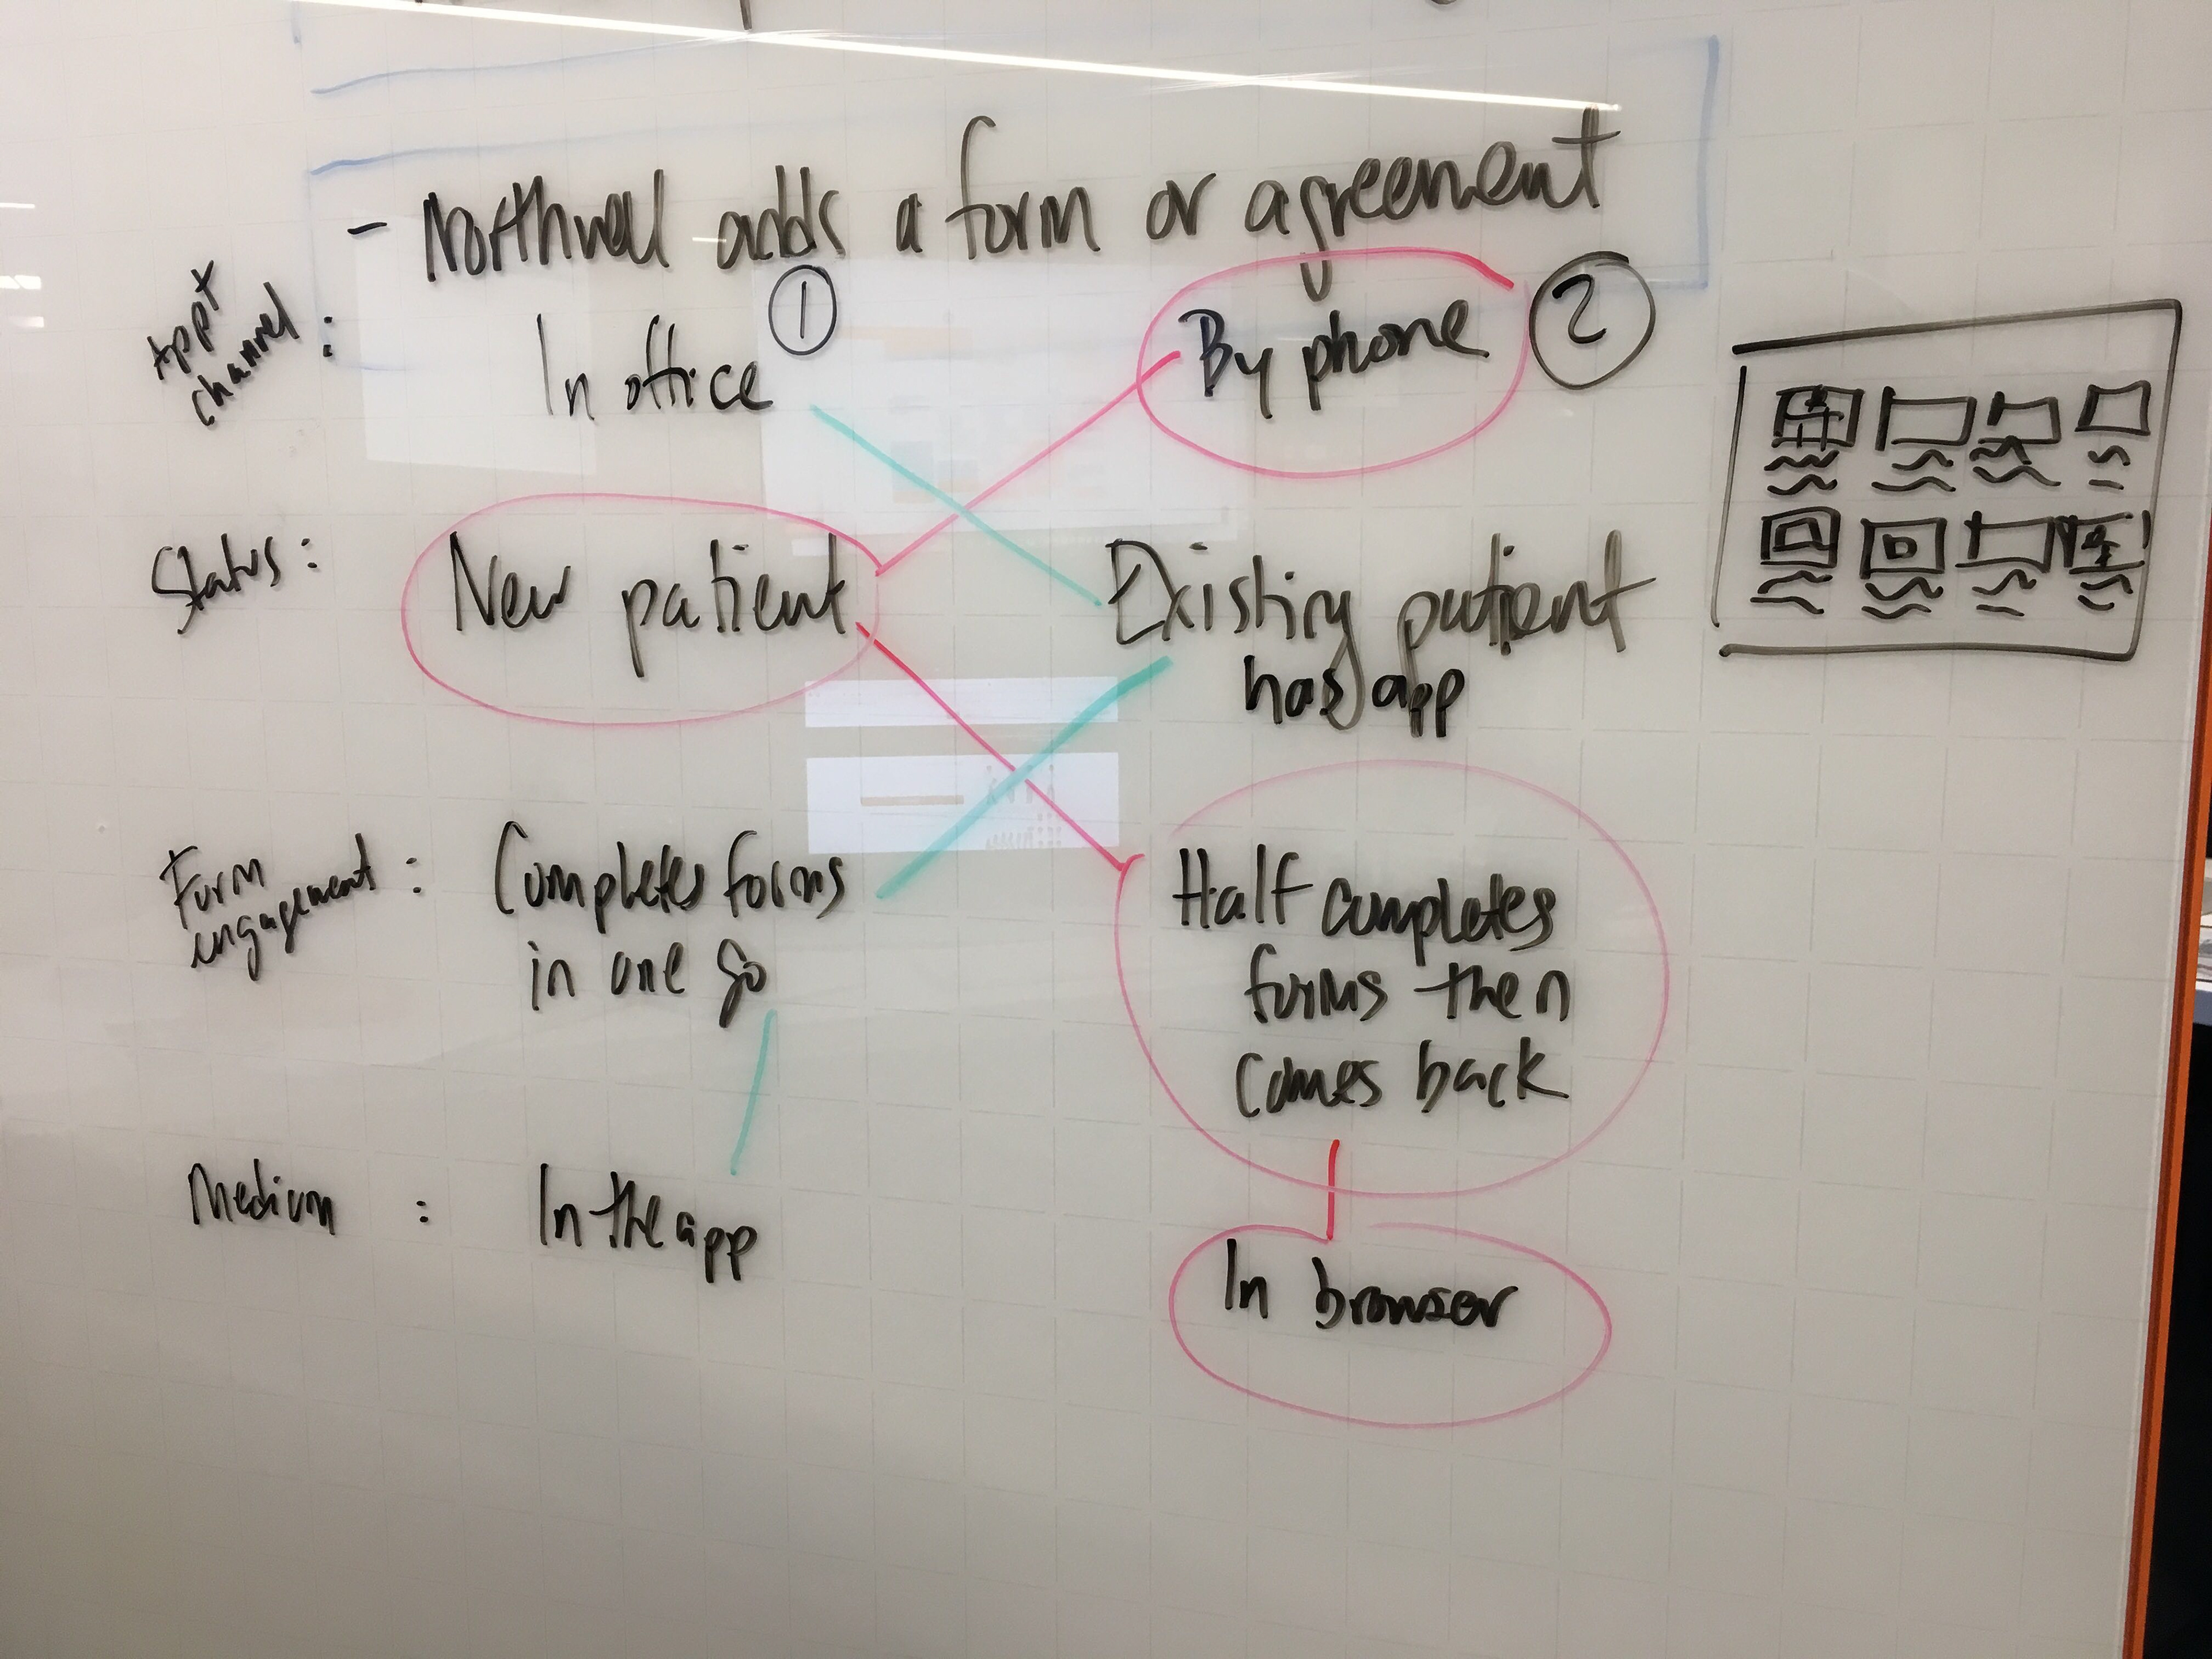 - Northwell adds a form or agreement
Appt
channel :
In office
1
By phone
2
Status :
New patient
Existing patient
has app
Form
engagement :
Completes forms
in one go
Half completes
forms then
comes back
Medium :
In the app
In browser